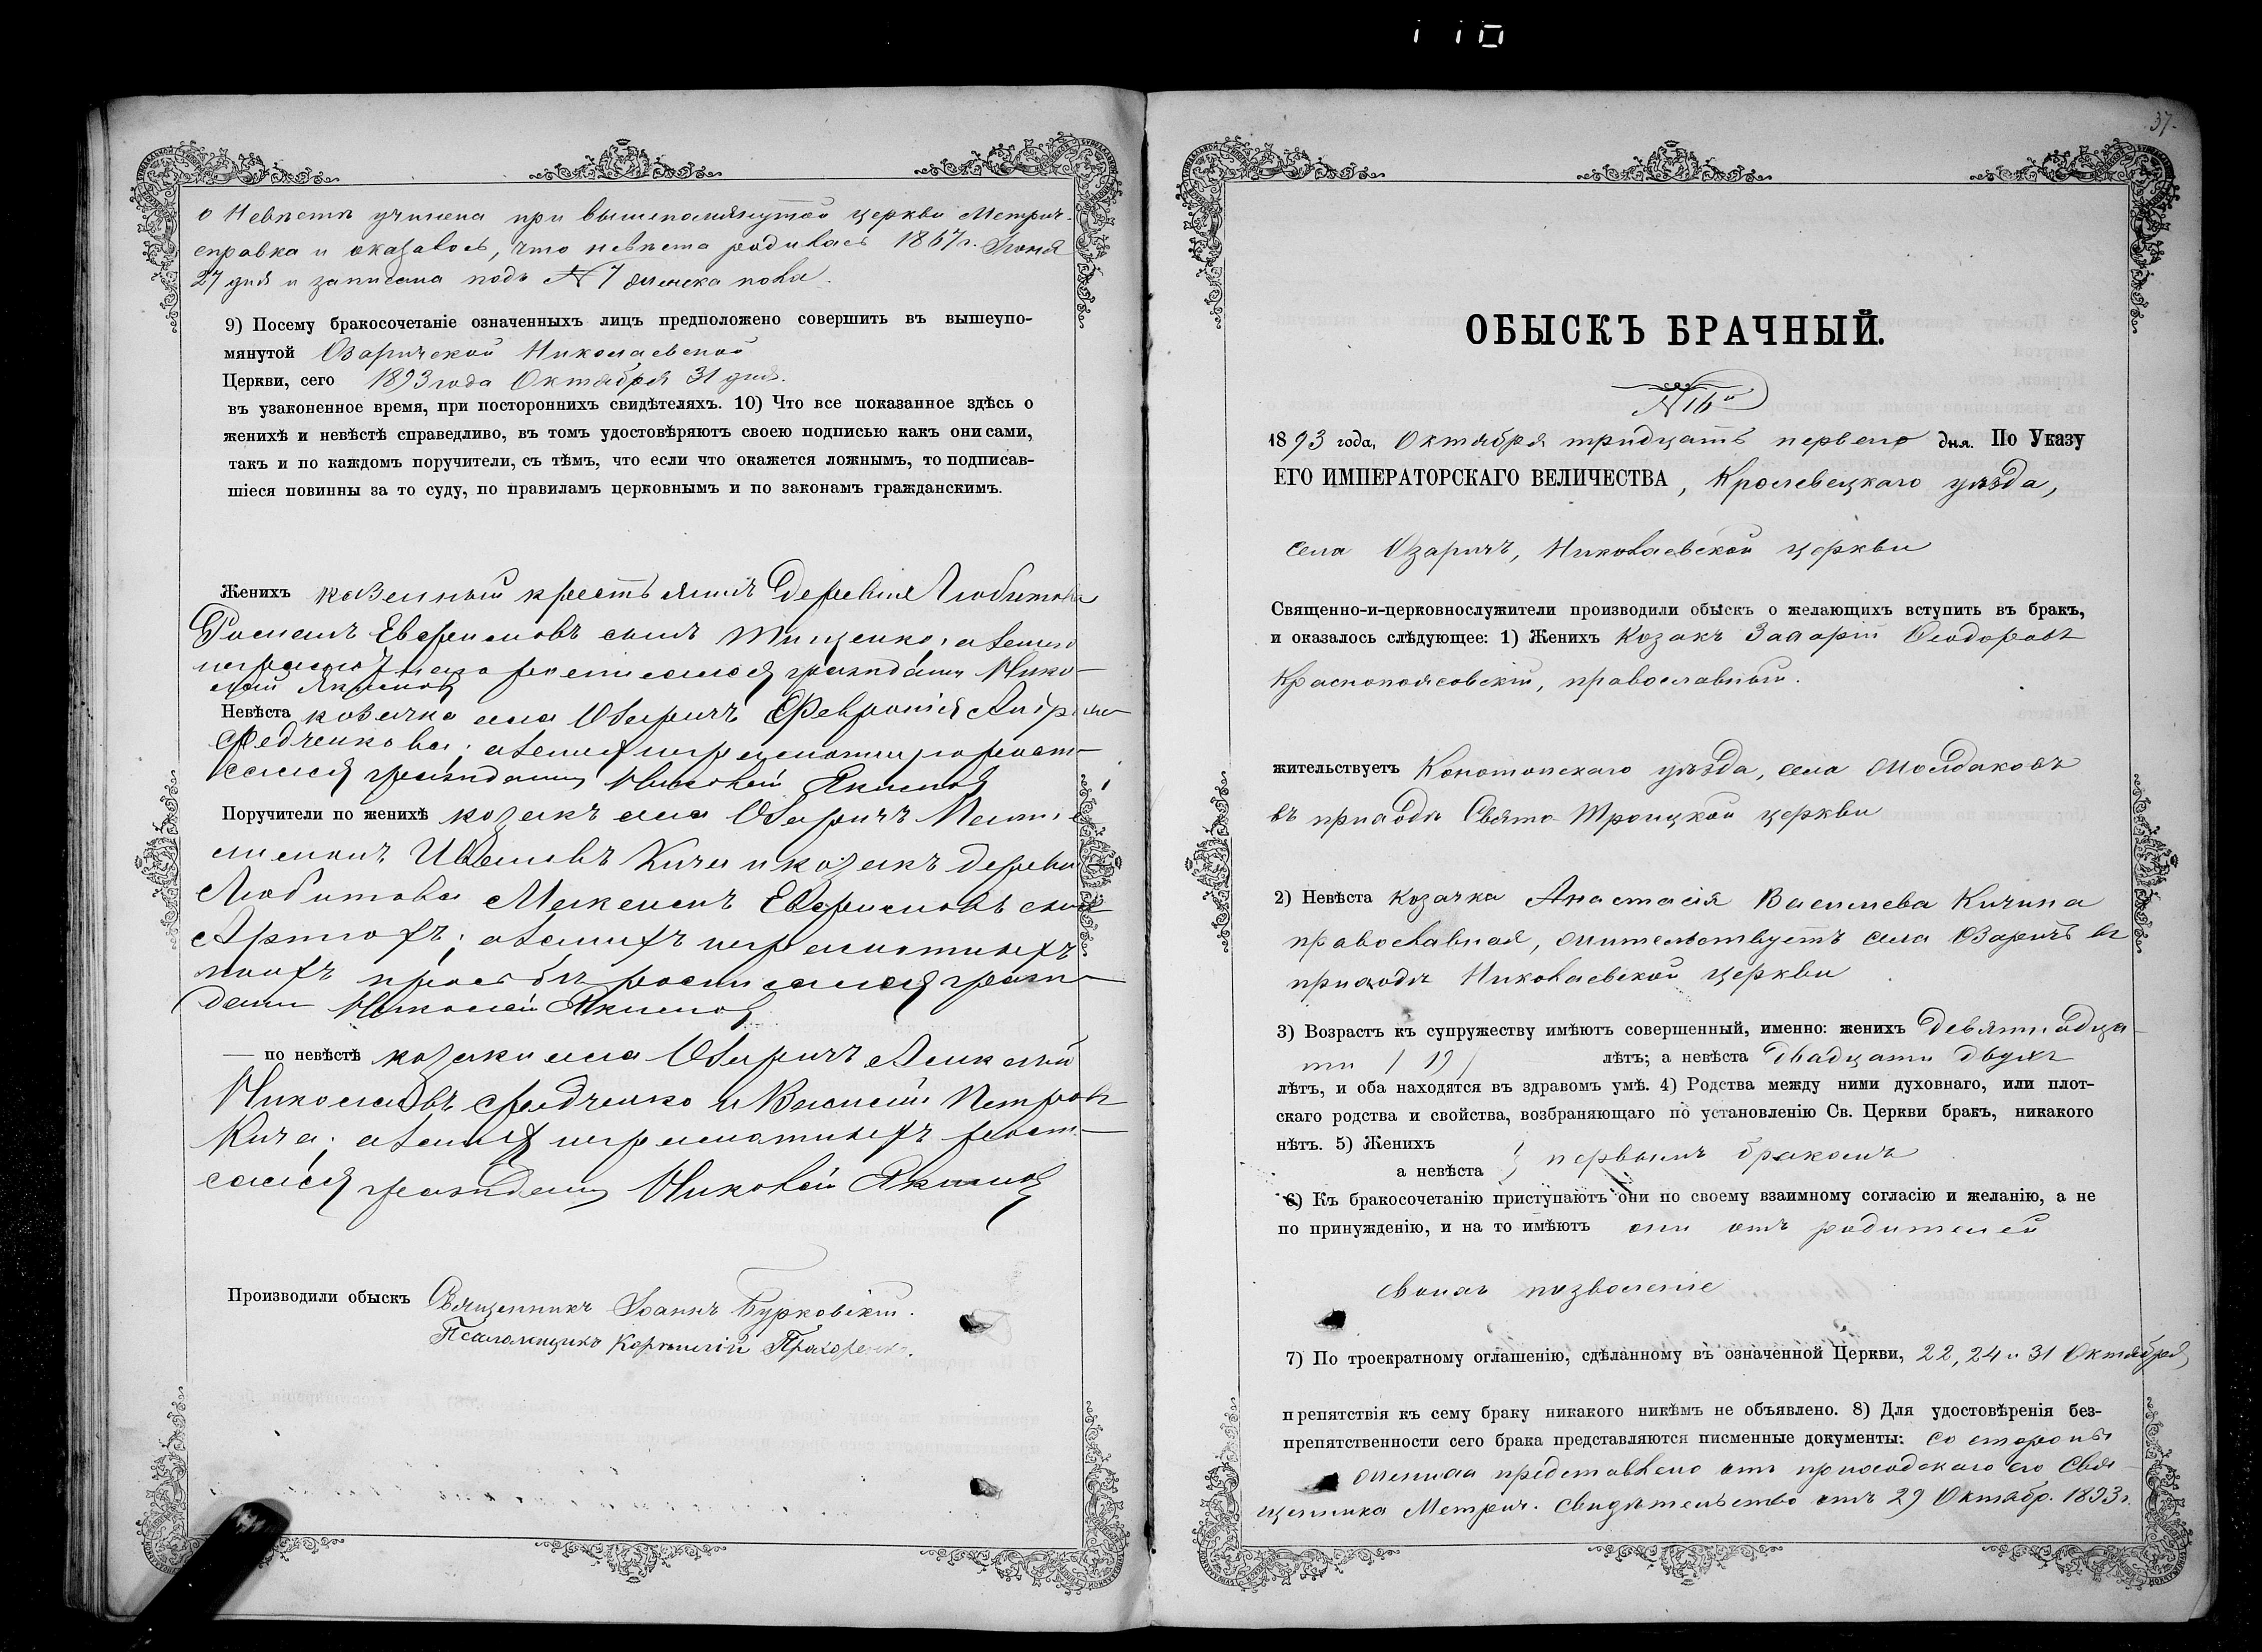 о Невѣстѣ учинена при вышепомянутой церкви Метрич.
справка и оказалось, что невѣста родилась 1867 г. Іюня
27 дня и записана подъ № 7 женска пола.
9) Посему бракосочетаніе означенныхъ лицъ предположено совершить въ вышеупо-
мянутой Озаричской Николаевской
Церкви, сего 1893 года Октября 31 дня.
въ узаконенное время, при постороннихъ свидѣтеляхъ. 10) Что все показанное здѣсь о
женихѣ и невѣстѣ справедливо, въ томъ удостовѣряютъ своею подписью какъ они сами,
такъ и по каждомъ поручители, съ тѣмъ, что если что окажется ложнымъ, то подписав-
шіеся повинны за то суду, по правиламъ церковнымъ и по законамъ гражданскимъ.
Женихъ казенный крестьянинъ деревни Любитова
Романъ Евфимовъ сынъ Тищенко, а за него
неграмотнаго росписался гражданин Нико-
лай Якимов
Невѣста козачка села Озаричъ Февронія Андреева
Федченкова; а за нея неграмотную роспи-
сался гражданин Николай Якимов
Поручители по женихѣ козакъ села Озаричъ
Ивановъ Кича и козакъ деревни
Любитова Евфимовъ сынъ
а за нихъ неграмотныхъ
по ихъ просьбѣ росписался граж-
данин Николай Якимов
— по невѣстѣ козаки села Озаричъ Алексѣй
Николаевъ Федченко и Василий Петровъ
Кича; а за нихъ неграмотныхъ роспи-
сался гражданин Николай Якимов
Производили обыскъ Священникъ Іоаннъ Бурковскій.
Псаломщикъ Корнилій Прохоренко.
37.
ОБЫСКЪ БРАЧНЫЙ.
№ 16й
1893 года, Октября тридцать перваго дня. По Указу
ЕГО ИМПЕРАТОРСКАГО ВЕЛИЧЕСТВА, Кролевецкаго уѣзда,
села Озаричъ, Николаевской церкви
Священно-и-церковнослужители производили обыскъ о желающихъ вступить въ бракъ,
и оказалось слѣдующее: 1) Женихъ Козакъ Захарій Ѳеодоровъ
Краснопоясовскій, православный.
жительствуетъ Конотопскаго уѣзда, села Молдаковъ
въ приходѣ Свято-Троицкой церкви
2) Невѣста Козачка Анастасія Васильева Кичина
православная, жительствуетъ села Озаричъ въ
приходѣ Николаевской церкви
3) Возрастъ къ супружеству имѣютъ совершенный, именно: женихъ девятнадца-
ти / 19 / лѣтъ; а невѣста двадцати двухъ
лѣтъ, и оба находятся въ здравомъ умѣ. 4) Родства между ними духовнаго, или плот-
скаго родства и свойства, возбраняющаго по установленію Св. Церкви бракъ, никакого
нѣтъ. 5) Женихъ
а невѣста } первымъ бракомъ
6) Къ бракосочетанію приступаютъ они по своему взаимному согласію и желанію, а не
по принужденію, и на то имѣютъ они отъ родителей
своихъ позволеніе
7) По троекратному оглашенію, сдѣланному въ означенной Церкви, 22, 24 и 31 Октября,
препятствія къ сему браку никакого никѣмъ не объявлено. 8) Для удостовѣренія без-
препятственности сего брака представляются писменные документы: со стороны
жениха представлено отъ приходскаго его Свя-
щенника Метрич. свидѣтельство отъ 29 Октябр. 1893 г.